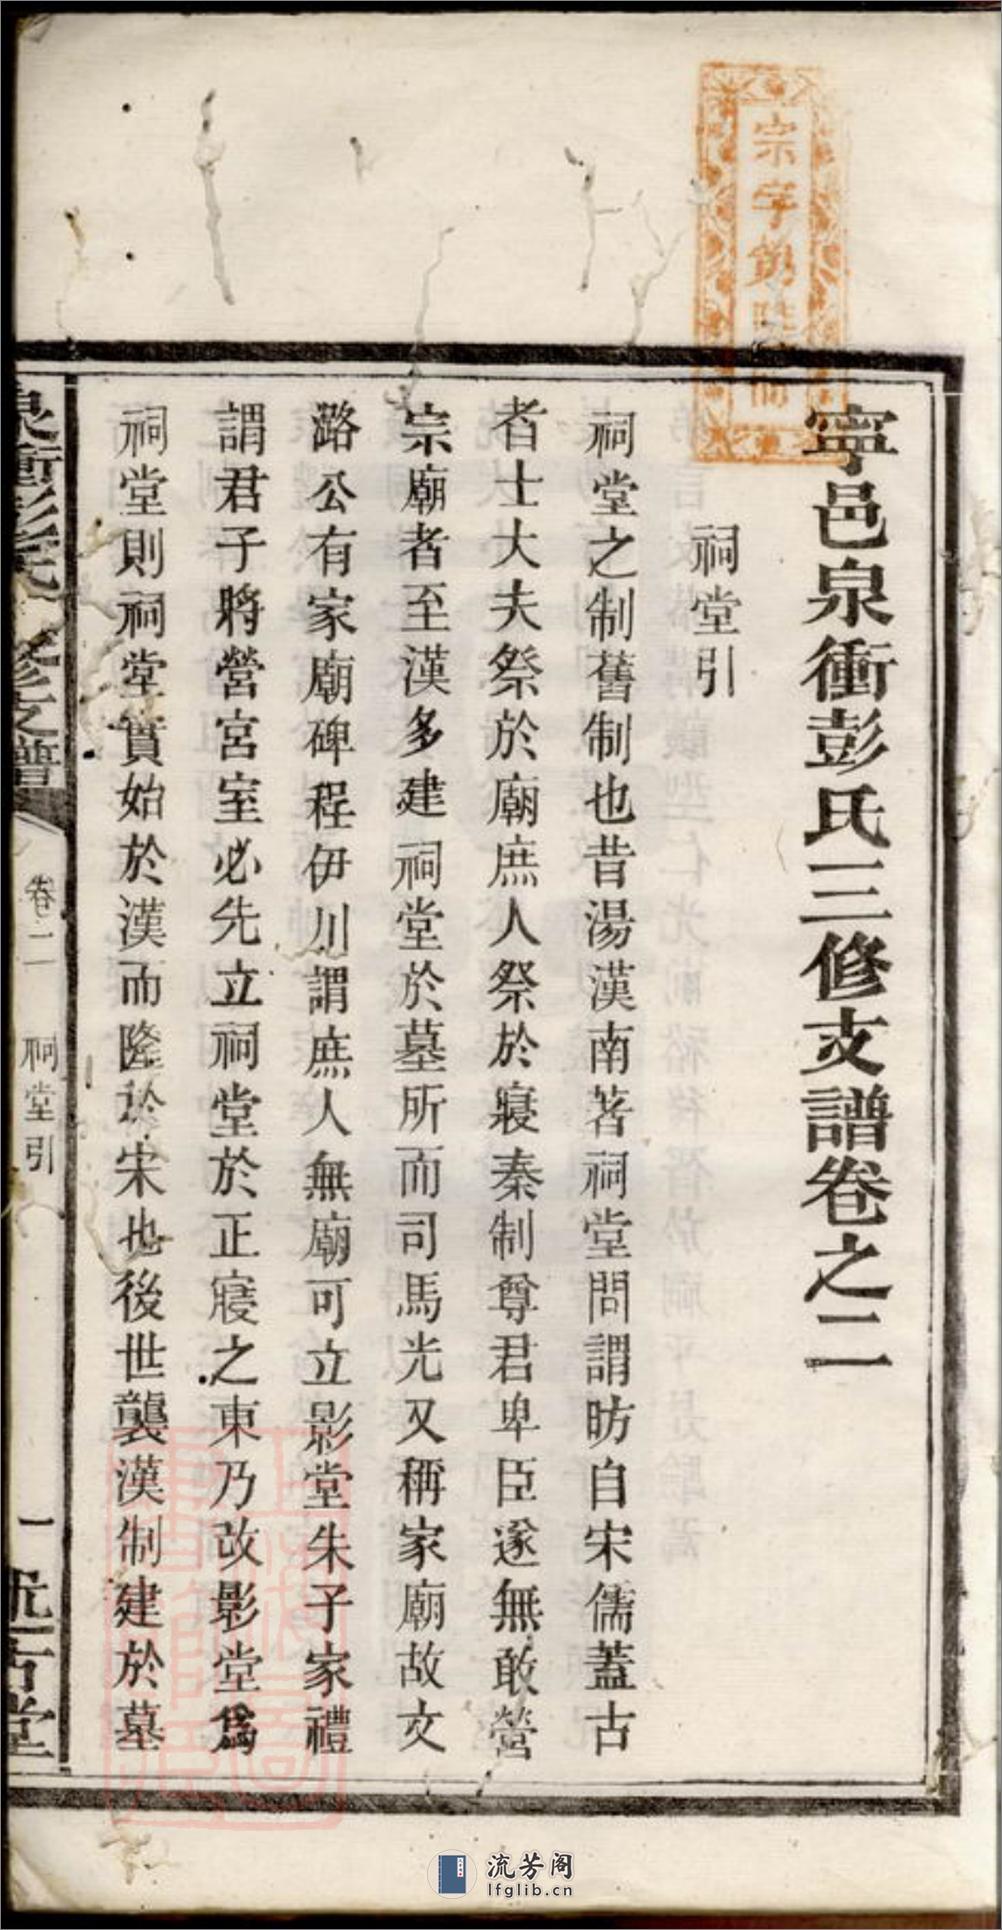 寧邑泉衝彭氏三修支譜卷之二
祠堂引
祠堂之制舊制也昔湯漢南著祠堂問謂昉自宋儒蓋古
者士大夫祭於廟庶人祭於寢秦制尊君卑臣遂無敢營
宗廟者至漢多建祠堂於墓所而司馬光又稱家廟故文
潞公有家廟碑程伊川謂庶人無廟可立影堂朱子家禮
謂君子將營宮室必先立祠堂於正寢之東乃改影堂爲
祠堂則祠堂實始於漢而隆於宋也後世襲漢制建於墓
泉衝彭氏三修支譜
卷二
祠堂引
一
述古堂
宗字
流芳阁
lfglib.cn